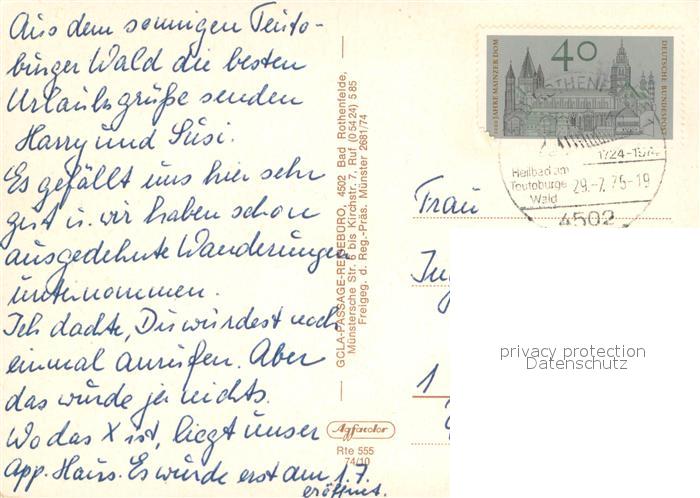 Aus dem sonnigen Teuto-
burger Wald die besten
Urlaubsgrüße senden
Harry und Susi.
Es gefällt uns hier sehr
gut u. wir haben schon
ausgedehnte Wanderungen
unternommen.
Ich dachte, Du würdest noch
einmal anrufen. Aber
das wurde ja nichts.
Wo das X ist, liegt unser
App. Haus. Es wurde erst am 1.7.
eröffnet.
GCLA-PASSAGE-REISEBÜRO, 4502 Bad Rothenfelde,
Münstersche Str. 6 bis Kirchstr. 7, Ruf (0 54 24) 5 85
Freigeg. d. Reg.-Präs. Münster 2681/74
Agfacolor
Rte 555
74/10
40
1000 JAHRE MAINZER DOM
DEUTSCHE BUNDESPOST
1724-1974
Heilbad am
Teutoburger
Wald
29.-7.75-19
4502
Frau
1
privacy protection
Datenschutz